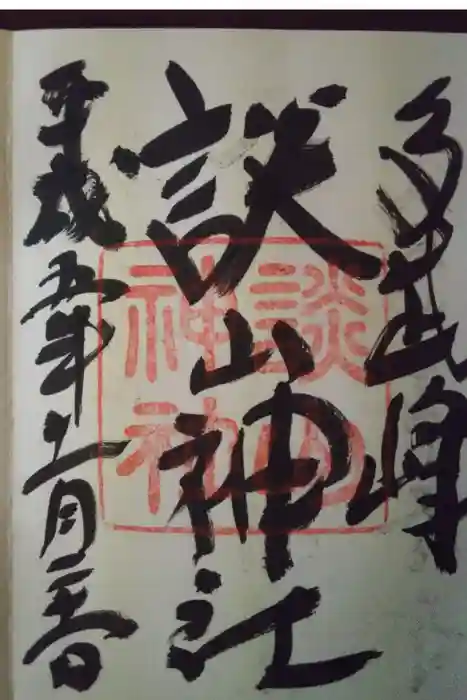 多武峰
談山神社
平成五年十一月
談山
神社